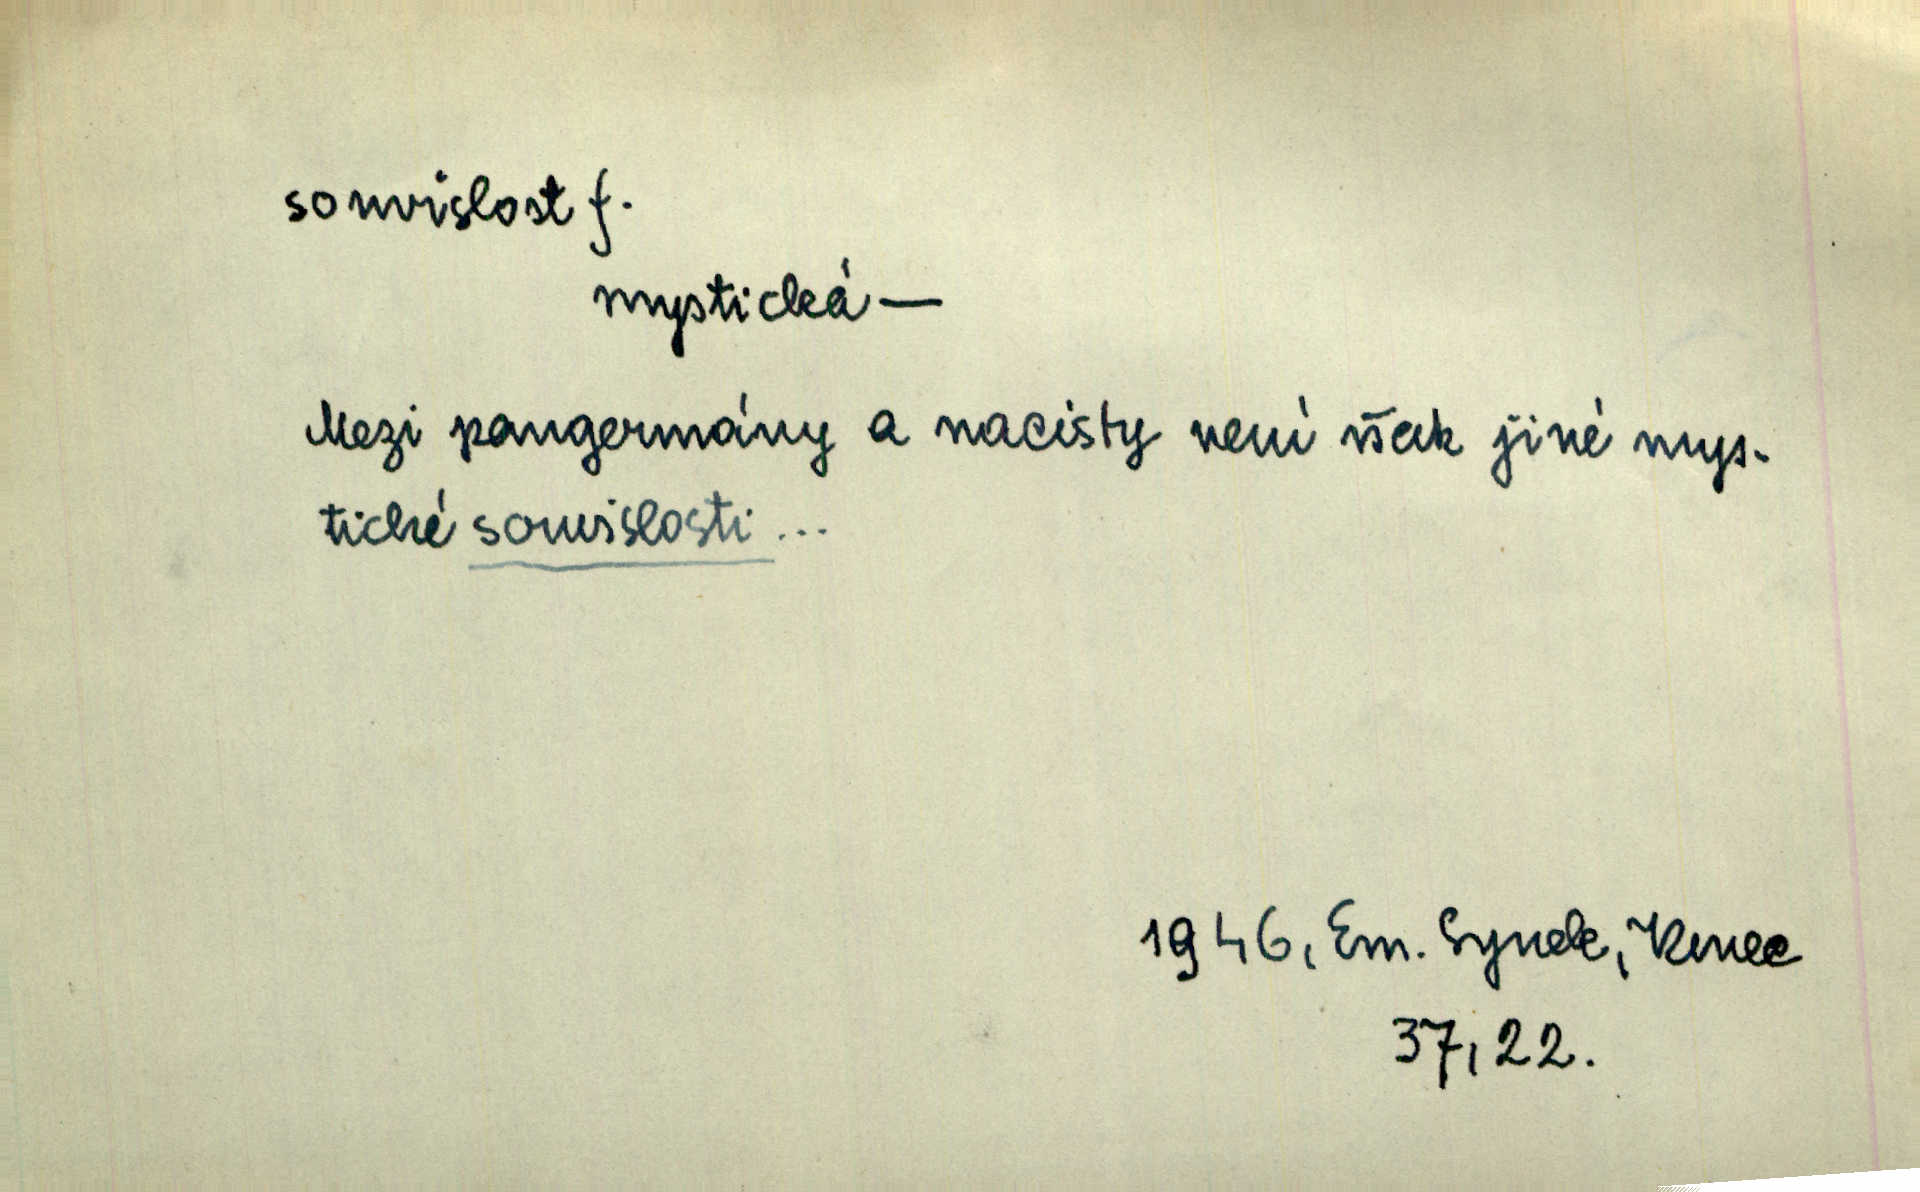 souvislost f.
mystická —
Mezi pangermány a nacisty není však jiné mys-
tické souvislosti ...
1946, Em. Synek,
37, 22.